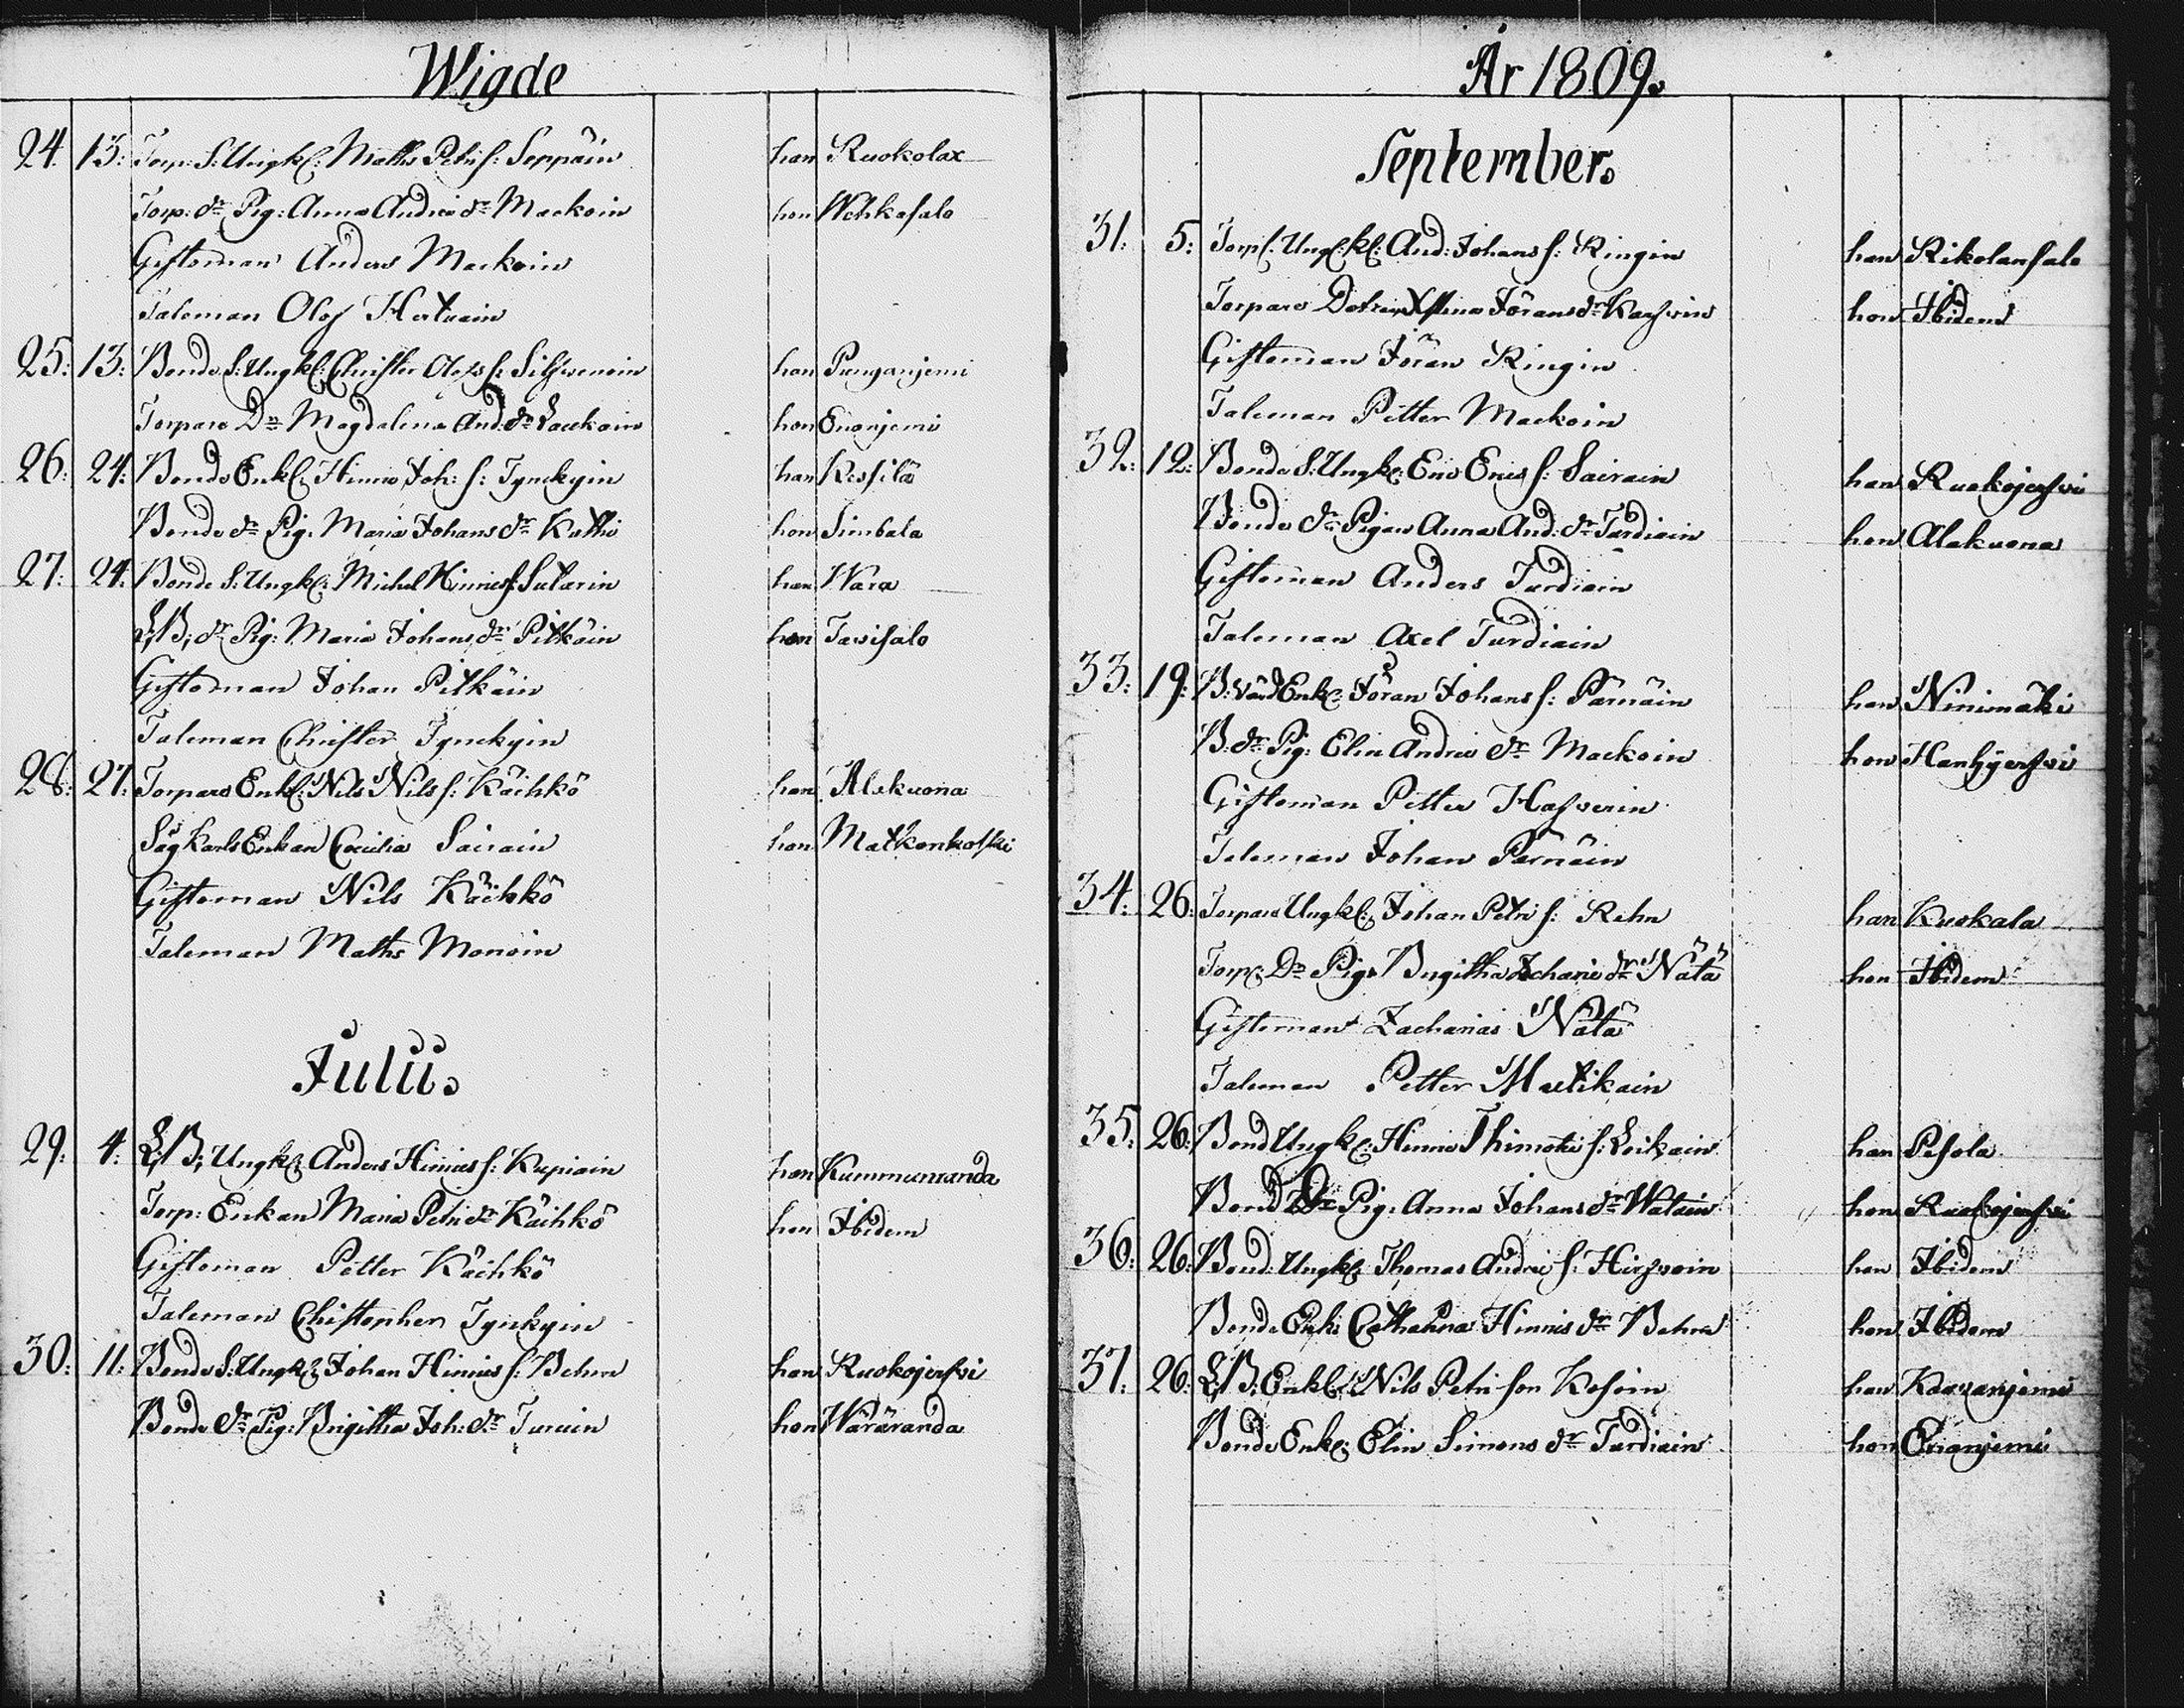 Wigde
24. 13: Torp: S: Ungk: Maths Petri s: Seppäin han Ruokolax
Torp: dr Pig: Anna Andreæ dr Mackoin hon Wehkasalo
Giftoman Anders Mackoin
Taleman Olof
25: 13: Bonde S: Ungk: Christer Olofs s: Silfwenoin han Punganjemi
Torpare Dr Magdalena And: dr Lauckain hon Enonjemi
26: 24: Bonde Enkl: Hinric Joh: s: Tynckyin han Ressilä
Bonde dr Pig: Maria Johans dr hon Simbala
27: 24: Bonde S: Ungk: Michel Hinrics s: Sutarin han Wara
L: B: dr Pig: Maria Johans dr Pitkäin hon Tarvisalo
Giftoman Johan Pitkäin
Taleman Christer Tynckyin
28: 27: Torpare Enkl: Nils Nils s: Käihkö han Alakuona
Säg Karls Enkan Cæcilia Sairain hon Matkonkoski
Giftoman Nils Käihkö
Taleman Maths Monoin
Julii.
29: 4: L: B: Ungk: Anders Hinrics s: Kupiain han Kummunranda
Torp: Enkan Maria Petri dr Käihkö hon Ibidem
Giftoman Petter Käihkö
Taleman Christopher Tynkyin
30: 11: Bonde S: Ungk: Johan Hinrics s: Behm han Ruokojerfvi
Bonde dr Pig: Brigitha Joh: dr Turuin hon Wäräranda
År 1809.
September.
31: 5: Torp s: Ung: k: And: Johans s: Ringin han Rikolansalo
Torpare Dotren Stina Jörans dr hon Ibidem
Giftoman Jöran Ringin
Taleman Petter Mackoin
32: 12: Bonde S: Ungk: Eric Erics s: Sairain han Ruokojerfvi
Bonde dr Pigan Anna And: dr Turdiain hon Alakuona
Giftoman Anders Turdiain
Taleman Axel Turdiain
33: 19: B: Enkl: Jöran Johans s: Pärnäin han Ninimäki
B: dr Pig: Elin Andreæ dr Mackoin hon Hanhijerfvi
Giftoman Petter Hafverin
Taleman Johan Pärnäin
34: 26: Torpare Ungk: Johan Petri s: Rehn han Kuokala
Torp: Dr Pig: Brigitha Zacharie dr Nätä hon Ibidem
Giftoman Zacharias Nätä
Taleman Petter Mustikain
35: 26: Bond Ungk: Hinric Thimotei s: Loikain han Pesola
Bond Dr Pig: Anna Johans dr Watain hon Ruokojerfvi
36: 26: Bond: Ungk: Thomas Andreæ s: Hirfvoin han Ibidem
Bonde Enk: Catharina Hinrics dr Behm hon Ibidem
37: 26: L: B: Enkl: Nils Petri son Kosoin han Kaaranjemi
Bonde Enk: Elin Simons dr Turdiain hon Enanjemi